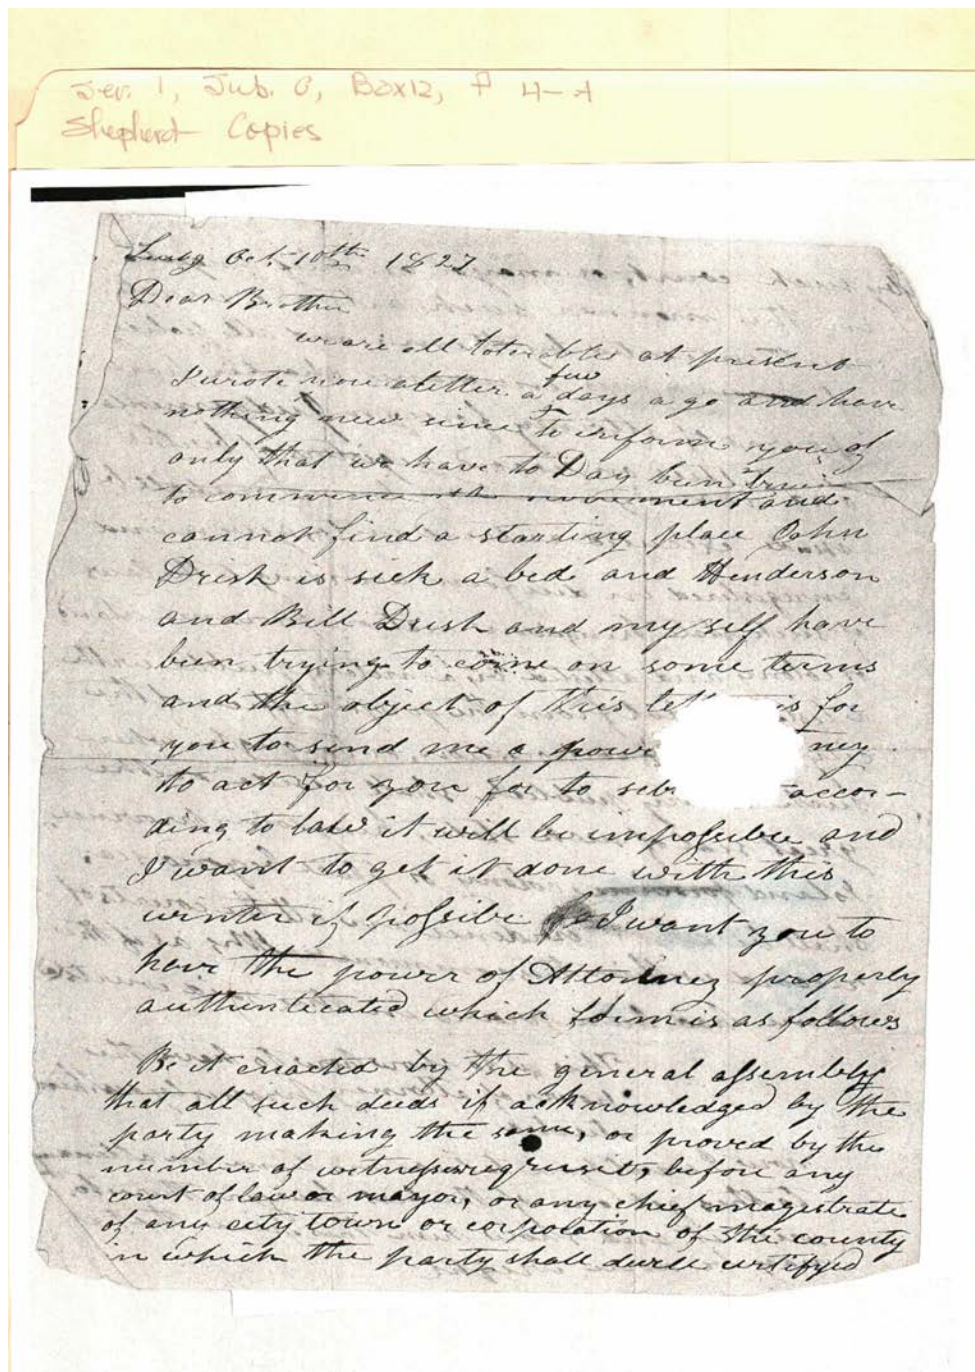 Ser. 1, Sub. C, Box 12, F 4-A
Shepherd Copies
Oct. 10th 1827
Dear Brother
we are all tolerable at present
I wrote you a letter a few days a go and have
nothing new since to inform you of
only that we have to Day been
to commence the movement and
cannot find a starting place John
Drish is sick a bed and Henderson
and Bill Drish and my self have
been trying to come on some terms
and the object of this is for
you to send me a
to act for you for to accor-
ding to law it will be impossible and
I want to get it done with this
winter if possible I want you to
have the power of Attorney properly
authenticated which form is as follows
Be it enacted by the general assembly
that all such deeds if acknowledged by the
party making the same, or proved by the
number of witnesses requisit, before any
court of law or mayor, or any chief magistrate
of any city town or corporation of the county
in which the party shall dwell certifyed